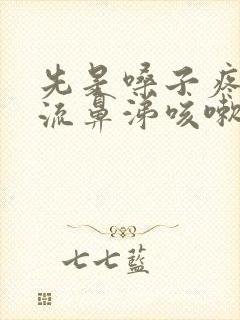 先是嗓子疼
流鼻涕咳嗽
七七藍